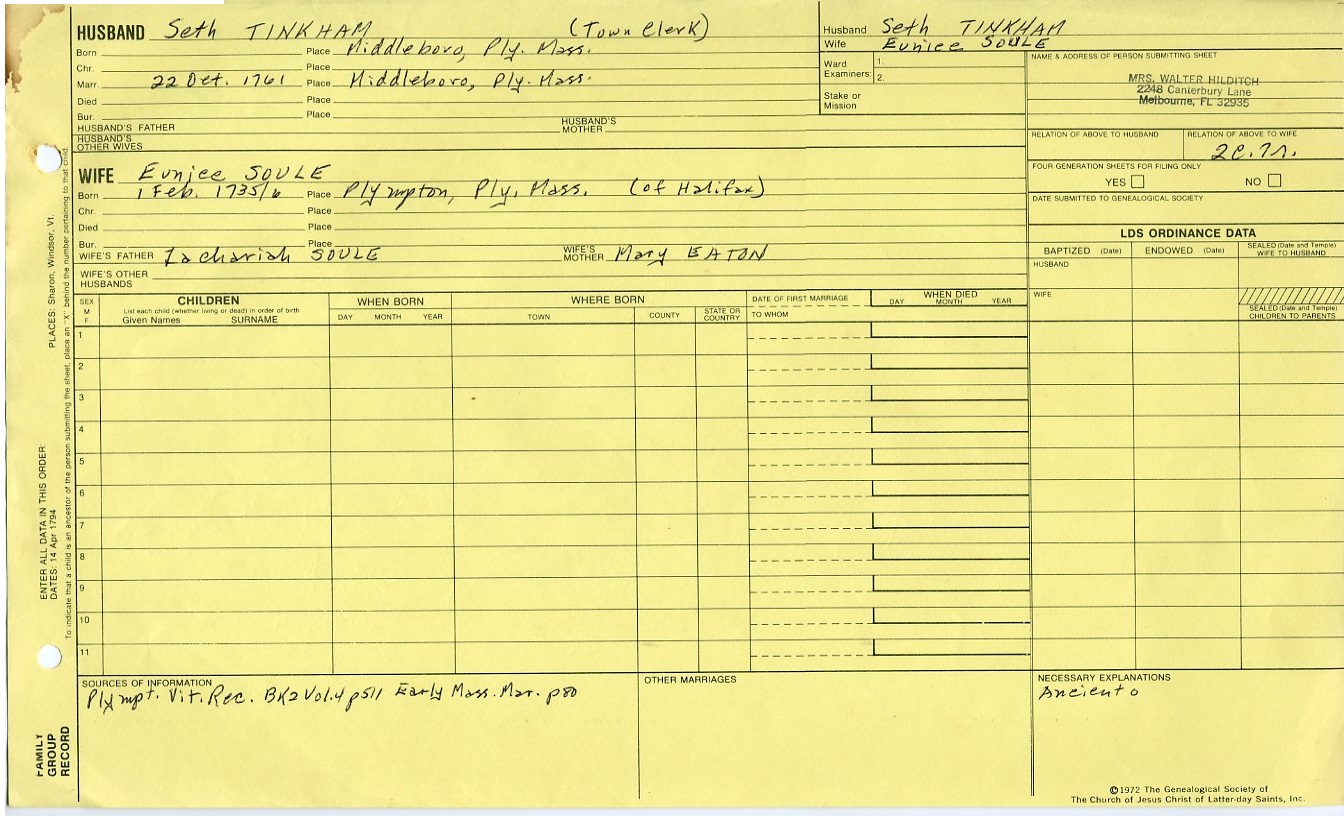 HUSBAND Seth TINKHAM (Town Clerk)
Born Place Middleboro, Ply. Mass.
Chr. Place
Marr. 22 Oct. 1761 Place Middleboro, Ply. Mass.
Died Place
Bur. Place
HUSBAND'S FATHER HUSBAND'S MOTHER
HUSBAND'S OTHER WIVES
WIFE Eunice SOULE
Born 1 Feb. 1735/6 Place Plympton, Ply, Mass. (of Halifax)
Chr. Place
Died Place
Bur. Place
WIFE'S FATHER Zachariah SOULE WIFE'S MOTHER Mary EATON
WIFE'S OTHER HUSBANDS
Husband Seth TINKHAM
Wife Eunice SOULE
Ward Examiners: 1.
2.
Stake or Mission
NAME & ADDRESS OF PERSON SUBMITTING SHEET
MRS. WALTER HILDITCH
2248 Canterbury Lane
Melbourne, FL 32935
RELATION OF ABOVE TO HUSBAND RELATION OF ABOVE TO WIFE
2c.7r.
FOUR GENERATION SHEETS FOR FILING ONLY
YES NO
DATE SUBMITTED TO GENEALOGICAL SOCIETY
LDS ORDINANCE DATA
BAPTIZED (Date) ENDOWED (Date) SEALED (Date and Temple) WIFE TO HUSBAND
HUSBAND
WIFE
SEALED (Date and Temple) CHILDREN TO PARENTS
SEX M F
CHILDREN
List each child (whether living or dead) in order of birth
Given Names SURNAME
WHEN BORN
DAY MONTH YEAR
WHERE BORN
TOWN COUNTY STATE OR COUNTRY
DATE OF FIRST MARRIAGE
TO WHOM
WHEN DIED
DAY MONTH YEAR
1
2
3
4
5
6
7
8
9
10
11
SOURCES OF INFORMATION
Plympt. Vit. Rec. BK2 Vol.4 p511 Early Mass. Mar. p80
OTHER MARRIAGES
NECESSARY EXPLANATIONS
©1972 The Genealogical Society of
The Church of Jesus Christ of Latter-day Saints, Inc.
FAMILY GROUP RECORD
ENTER ALL DATA IN THIS ORDER:
DATES: 14 Apr 1794 PLACES: Sharon, Windsor, Vt.
To indicate that a child is an ancestor of the person submitting the sheet, place an "X" behind the number pertaining to that child.